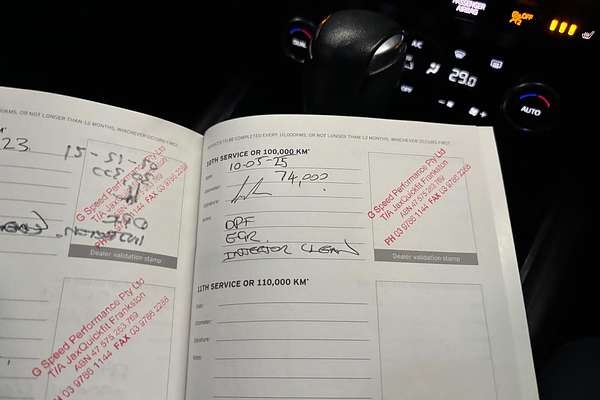 PASSENGER
AIRBAG
OFF
DUAL
A/C
29.0
AUTO
OKMS, OR NOT LONGER THAN 12 MONTHS, WHICHEVER OCCURS FIRST.
23.
G Speed Performance Pty Ltd
T/A JaxQuickfit Frankston
ABN 47 575 253 769
PH 03 9786 1144 FAX 03 9786 2266
Dealer validation stamp
G Speed Performance Pty Ltd
T/A JaxQuickfit Frankston
ABN 47 575 253 769
PH 03 9786 1144 FAX 03 9786 2266
TO BE COMPLETED EVERY 10,000KMS, OR NOT LONGER THAN 12 MONTHS, WHICHEVER OCCURS FIRST.
10TH SERVICE OR 100,000 KM*
Date:
10-05-25
Odometer:
74,000
Signature:
Notes:
DPF
EGR
INJECTOR CLEAN
G Speed Performance Pty Ltd
T/A JaxQuickfit Frankston
ABN 47 575 253 769
PH 03 9786 1144 FAX 03 9786 2266
Dealer validation stamp
11TH SERVICE OR 110,000 KM*
Date:
Odometer:
Signature:
Notes: